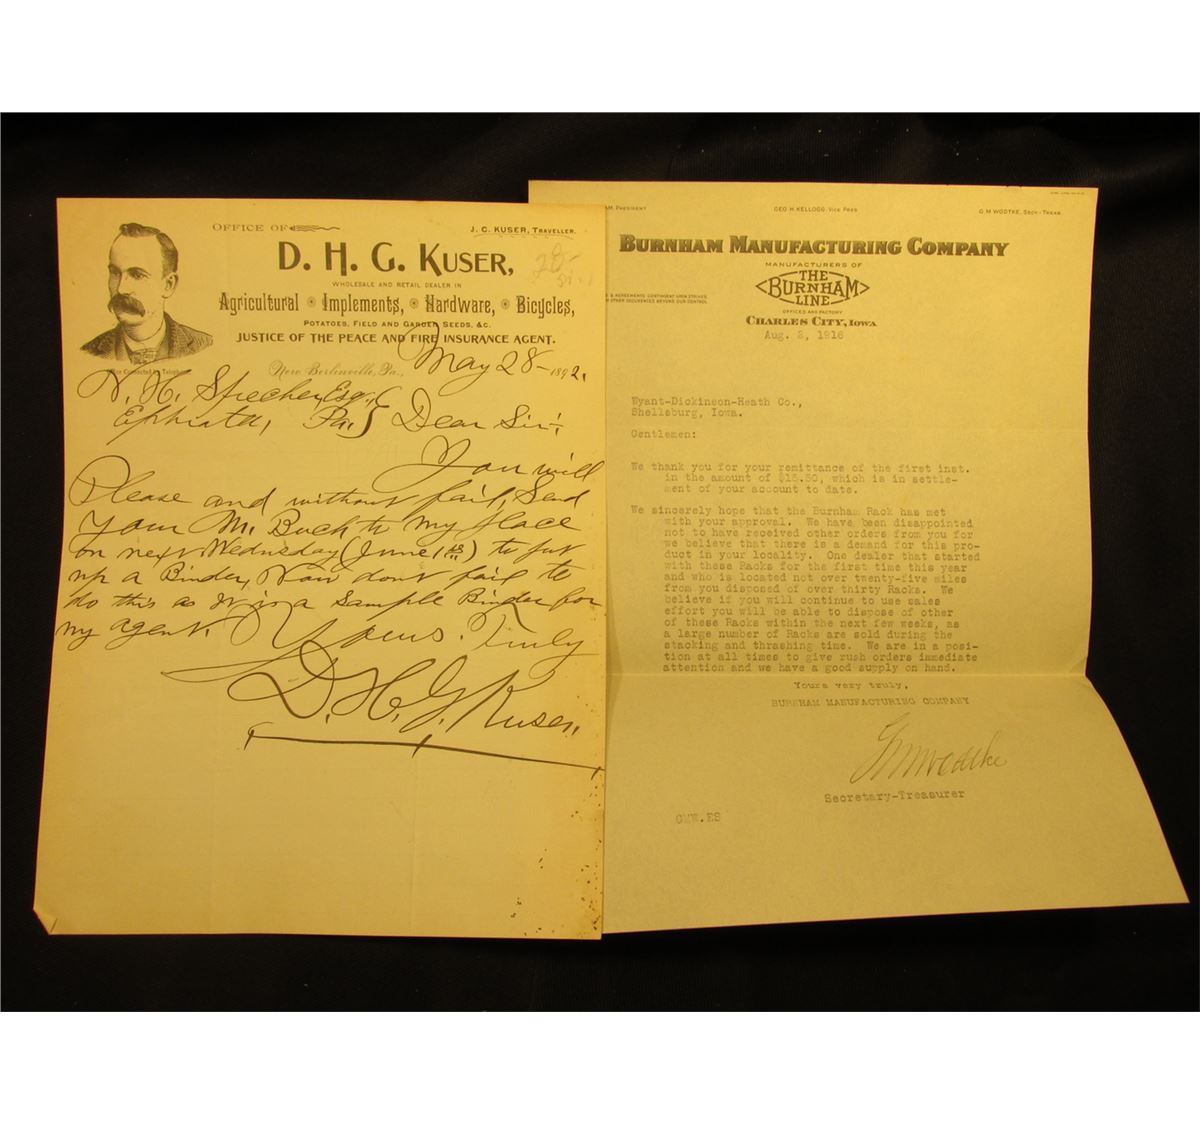 OFFICE OF
J. C. KUSER, TRAVELLER.
D. H. G. KUSER,
WHOLESALE AND RETAIL DEALER IN
Agricultural Implements, Hardware, Bicycles,
POTATOES, FIELD AND GARDEN SEEDS, &C.
JUSTICE OF THE PEACE AND FIRE INSURANCE AGENT.
New Berlinville, Pa., May 28 - 1892.
H. Sprecher, Esq.
Ephrata, Pa. } Dear Sir:
You will
Please and without fail, Send
your M. Buch to my place
on next Wednesday (June 1st) to put
up a Binder, Now dont fail to
do this as it is a Sample Binder for
my agent. Yours Truly
D. H. G. Kuser.
PRESIDENT
GEO H. KELLOGG, VICE PRES
G M WODTKE, SECY-TREAS.
BURNHAM MANUFACTURING COMPANY
MANUFACTURERS OF
THE
BURNHAM
LINE
AGREEMENTS CONTINGENT UPON STRIKES,
OTHER OCCURENCES BEYOND OUR CONTROL
OFFICES AND FACTORY
CHARLES CITY, IOWA
Aug. 2, 1916
Wyant-Dickinson-Heath Co.,
Shellsburg, Iowa.
Gentlemen:
We thank you for your remittance of the first inst.
in the amount of $15.50, which is in settle-
ment of your account to date.
We sincerely hope that the Burnham Rack has met
with your approval. We have been disappointed
not to have received other orders from you for
we believe that there is a demand for this pro-
duct in your locality. One dealer that started
with these Racks for the first time this year
and who is located not over twenty-five miles
from you disposed of over thirty Racks. We
believe if you will continue to use sales
effort you will be able to dispose of other
of these Racks within the next few weeks, as
a large number of Racks are sold during the
stacking and thrashing time. We are in a posi-
tion at all times to give rush orders immediate
attention and we have a good supply on hand.
Yours very truly,
BURNHAM MANUFACTURING COMPANY
GMWodtke
Secretary-Treasurer
GMW.ES